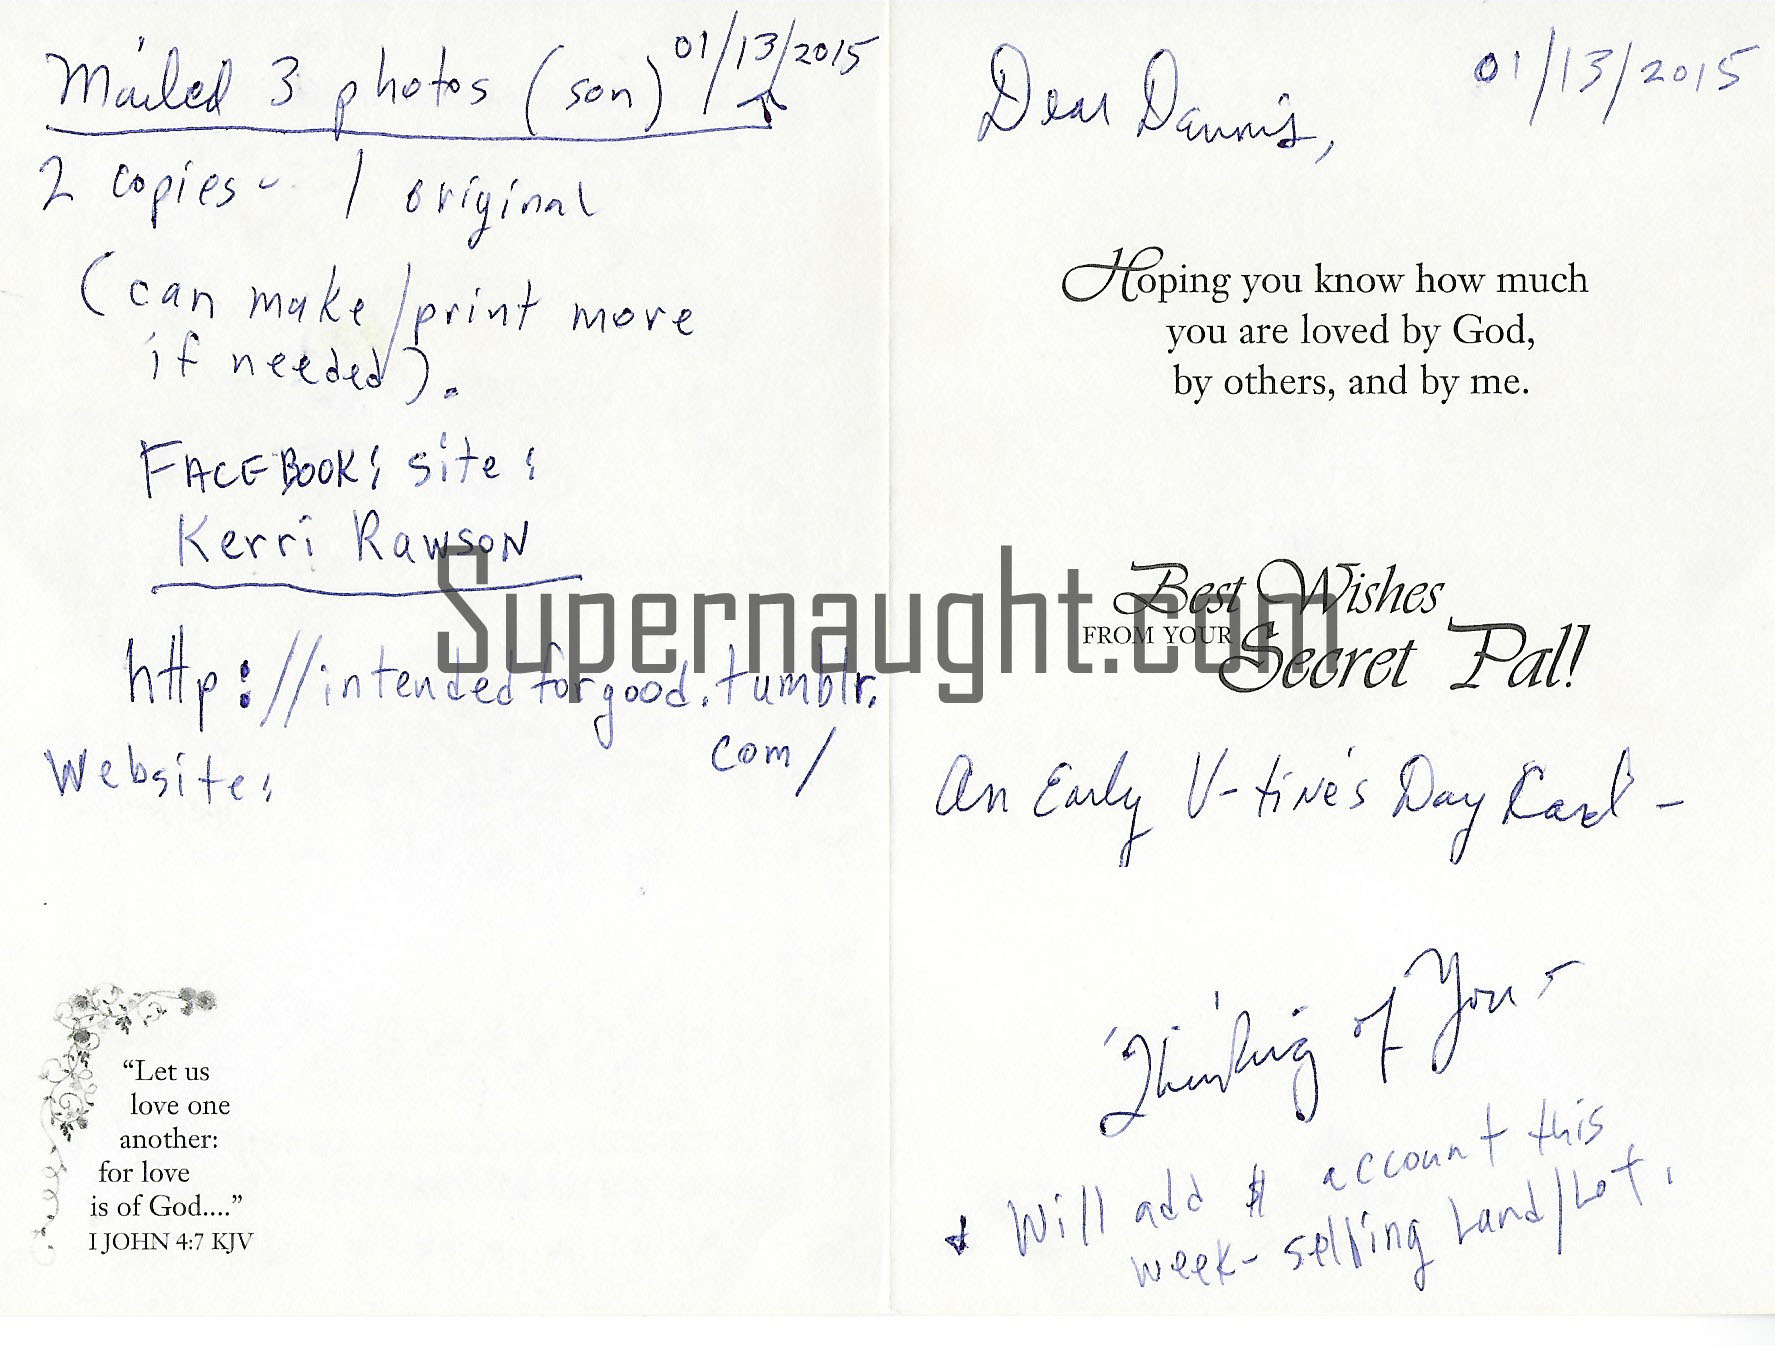 Mailed 3 photos (son) 01/13/2015
2 copies - 1 original
(can make/print more
if needed).
FACEBOOK: site:
Kerri Rawson
http://intendedforgood.tumblr.
com/
Website:
“Let us
love one
another:
for love
is of God....”
I JOHN 4:7 KJV
01/13/2015
Dear Dennis,
Hoping you know how much
you are loved by God,
by others, and by me.
Best Wishes
FROM YOUR
Secret Pal!
An Early V-tine's Day Card -
Thinking of You -
Will add $ account this
week - selling Land/Lot.
Supernaught.com